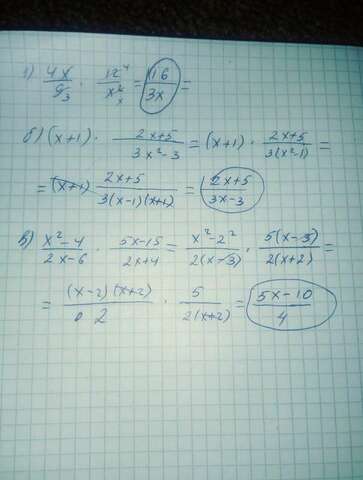 а) 4x/9₃ · 12⁴/x²ₓ = 16/3x =
б) (x+1) · 2x+5/3x²-3 = (x+1) · 2x+5/3(x²-1) =
= (x+1) 2x+5/3(x-1)(x+1) = 2x+5/3x-3
в) x²-4/2x-6 · 5x-15/2x+4 = x²-2²/2(x-3) · 5(x-3)/2(x+2) =
= (x-2)(x+2)/2 · 5/2(x+2) = 5x-10/4